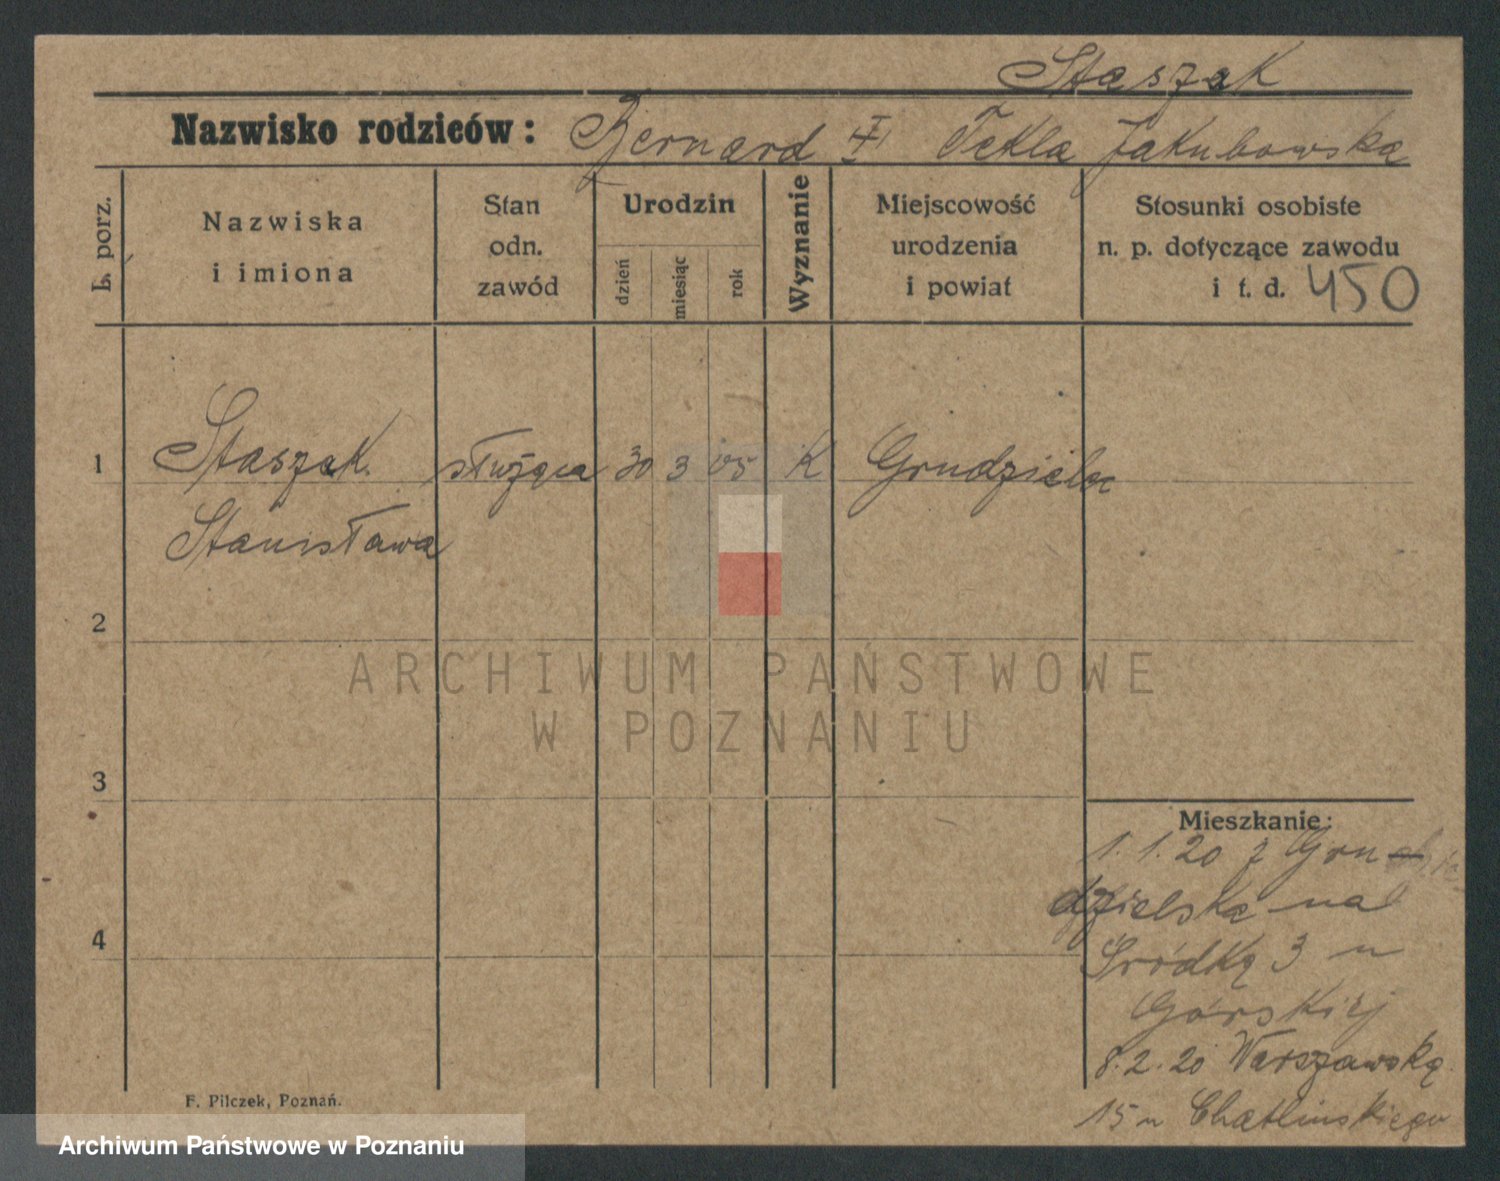 Staszak
Nazwisko rodziców: Bernard i Tekla Jakubowska
L. porz.
Nazwiska
i imiona
Stan
odn.
zawód
Urodzin
dzień
miesiąc
rok
Wyznanie
Miejscowość
urodzenia
i powiat
Stosunki osobiste
n. p. dotyczące zawodu
i t. d. 450
1 Staszak służąca 30 3 05 K Grudzielec
Stanisława
2
3
4
ARCHIWUM PAŃSTWOWE
W POZNANIU
Mieszkanie:
1.1.20 z Gru
dzielska na
Śródką 3 u
Górskiej
8.2.20 Warszawską
15 u
F. Pilczek, Poznań.
Archiwum Państwowe w Poznaniu